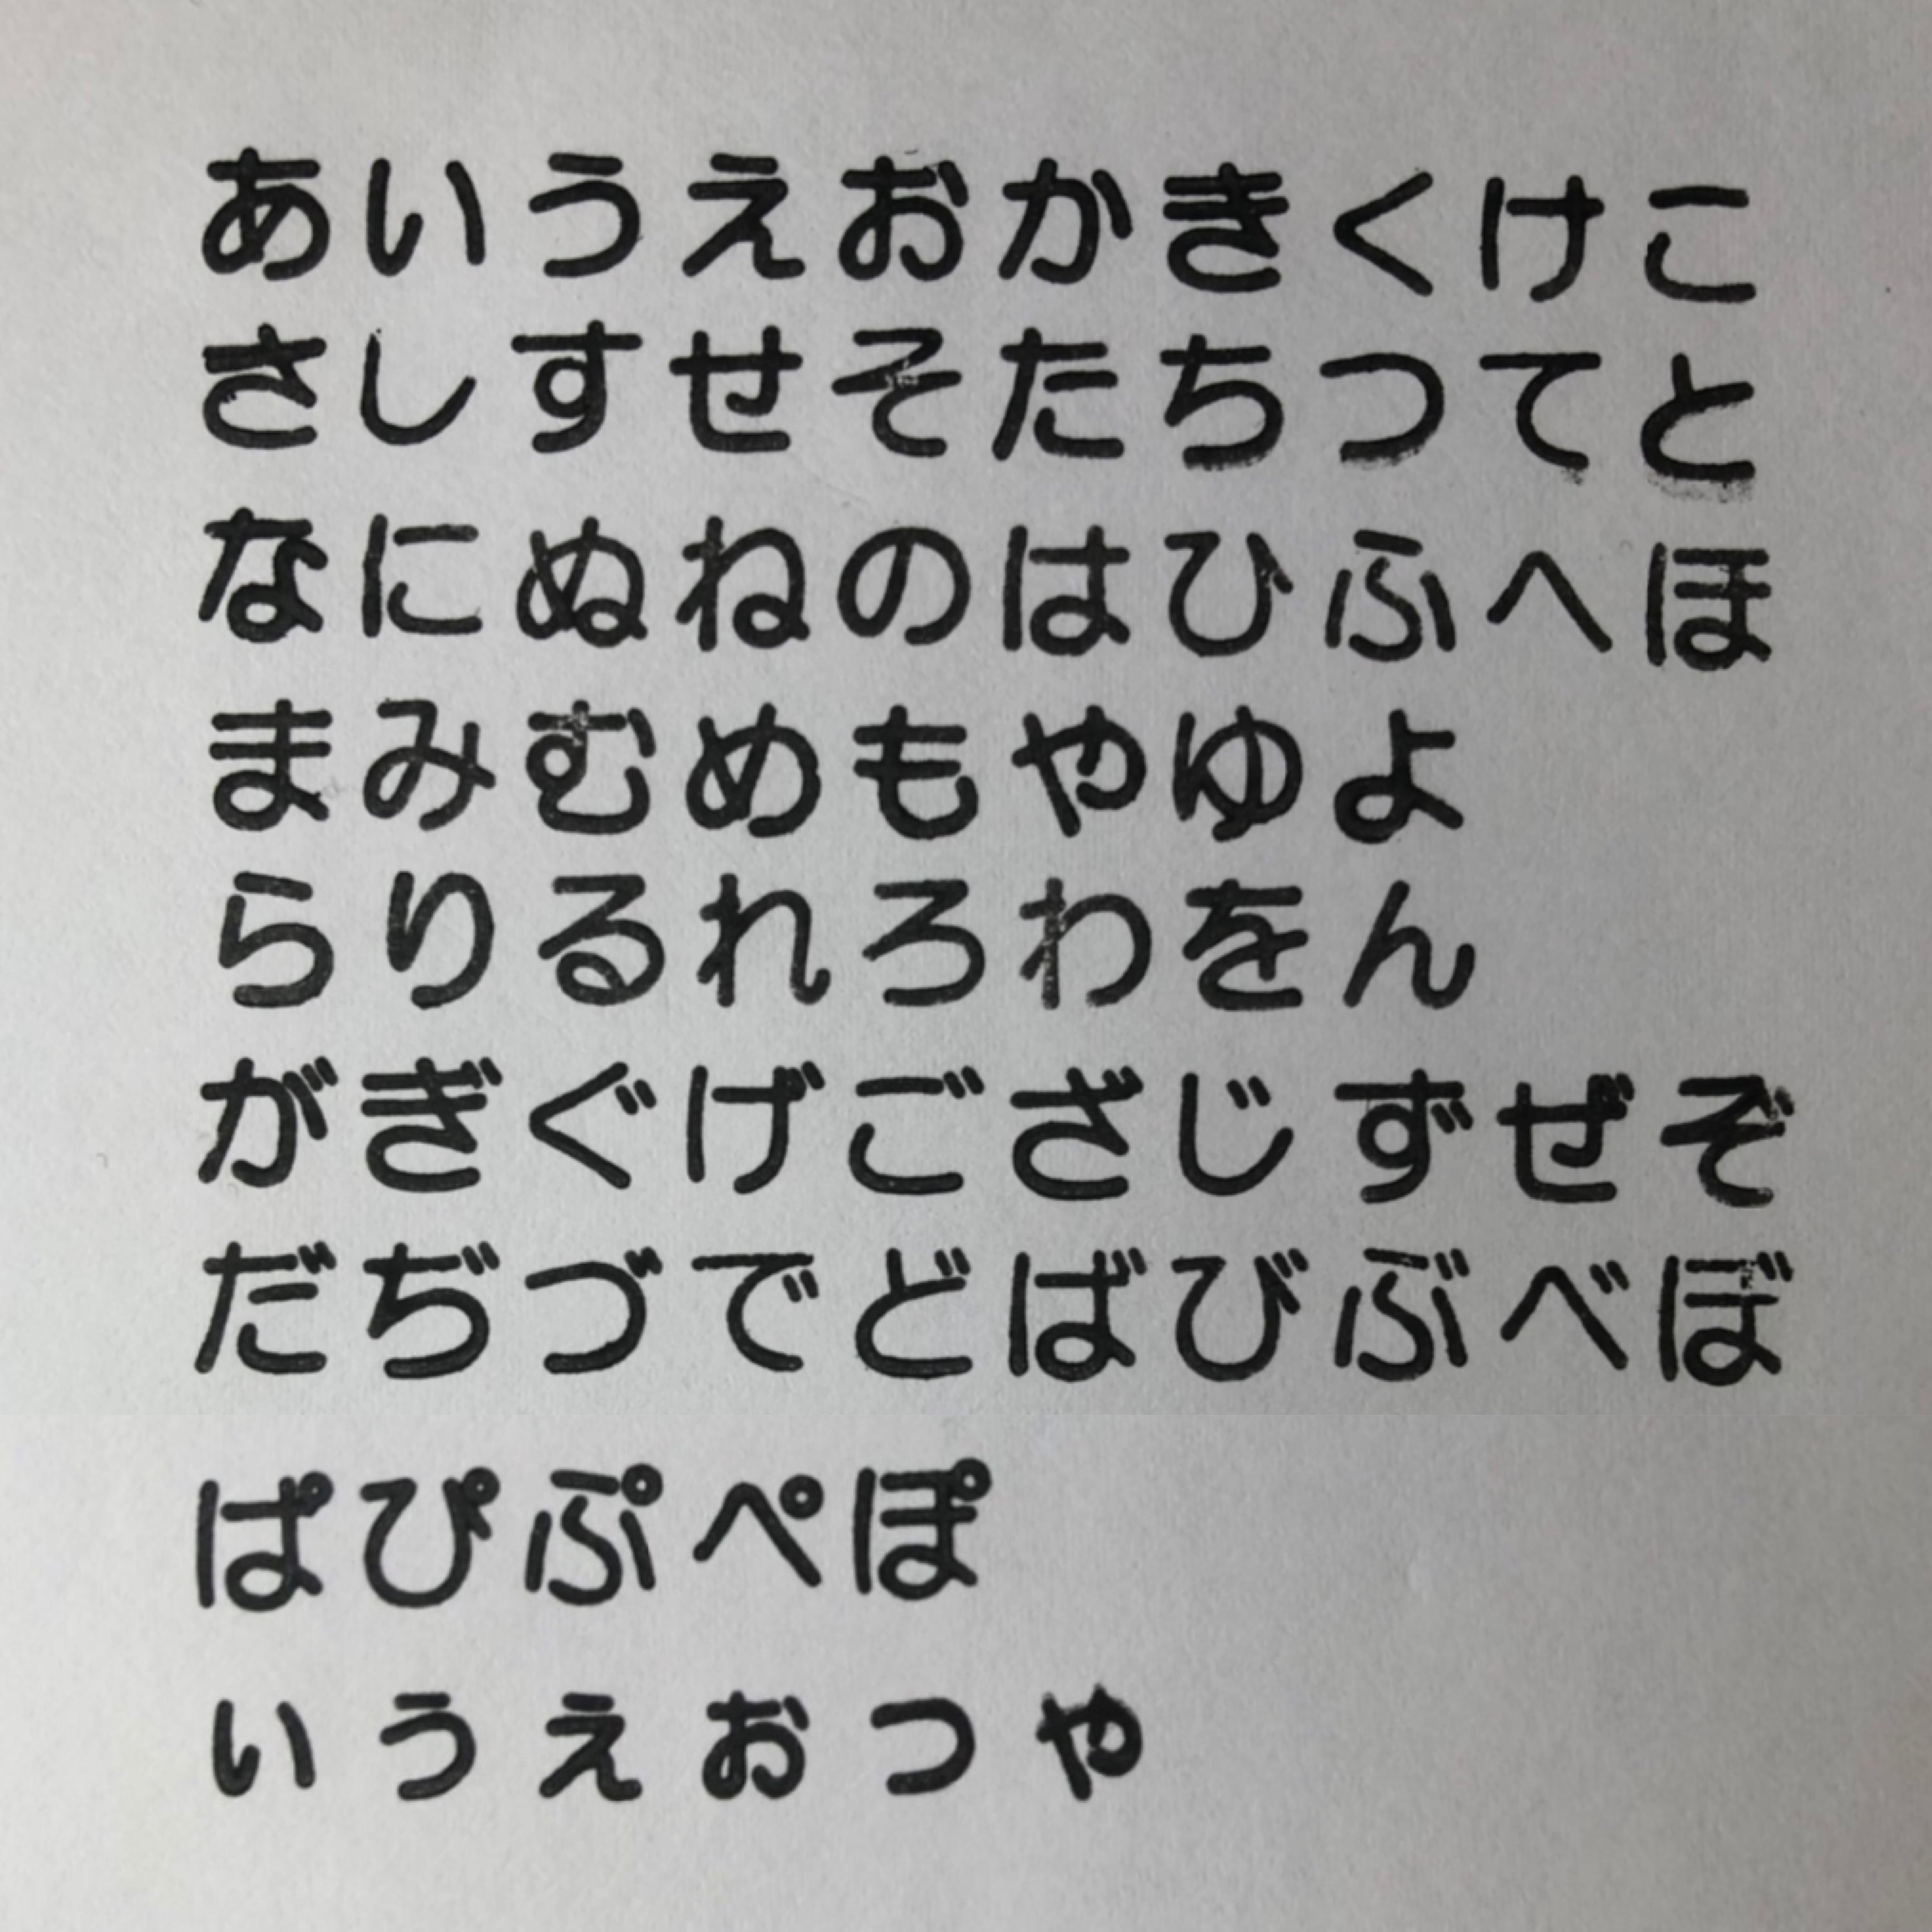 あいうえおかきくけこ
さしすせそたちつてと
なにぬねのはひふへほ
まみむめもやゆよ
らりるれろわをん
がぎぐげござじずぜぞ
だぢづでどばびぶべぼ
ぱぴぷぺぽ
ぃぅぇぉっゃ